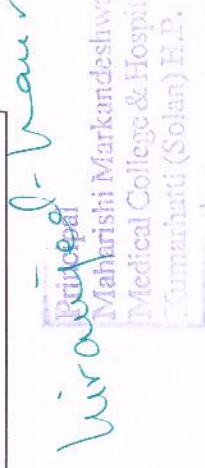 Principal
Maharishi Markandeshwa
Medical College & Hospi
Kumarhatti (Solan) H.P.